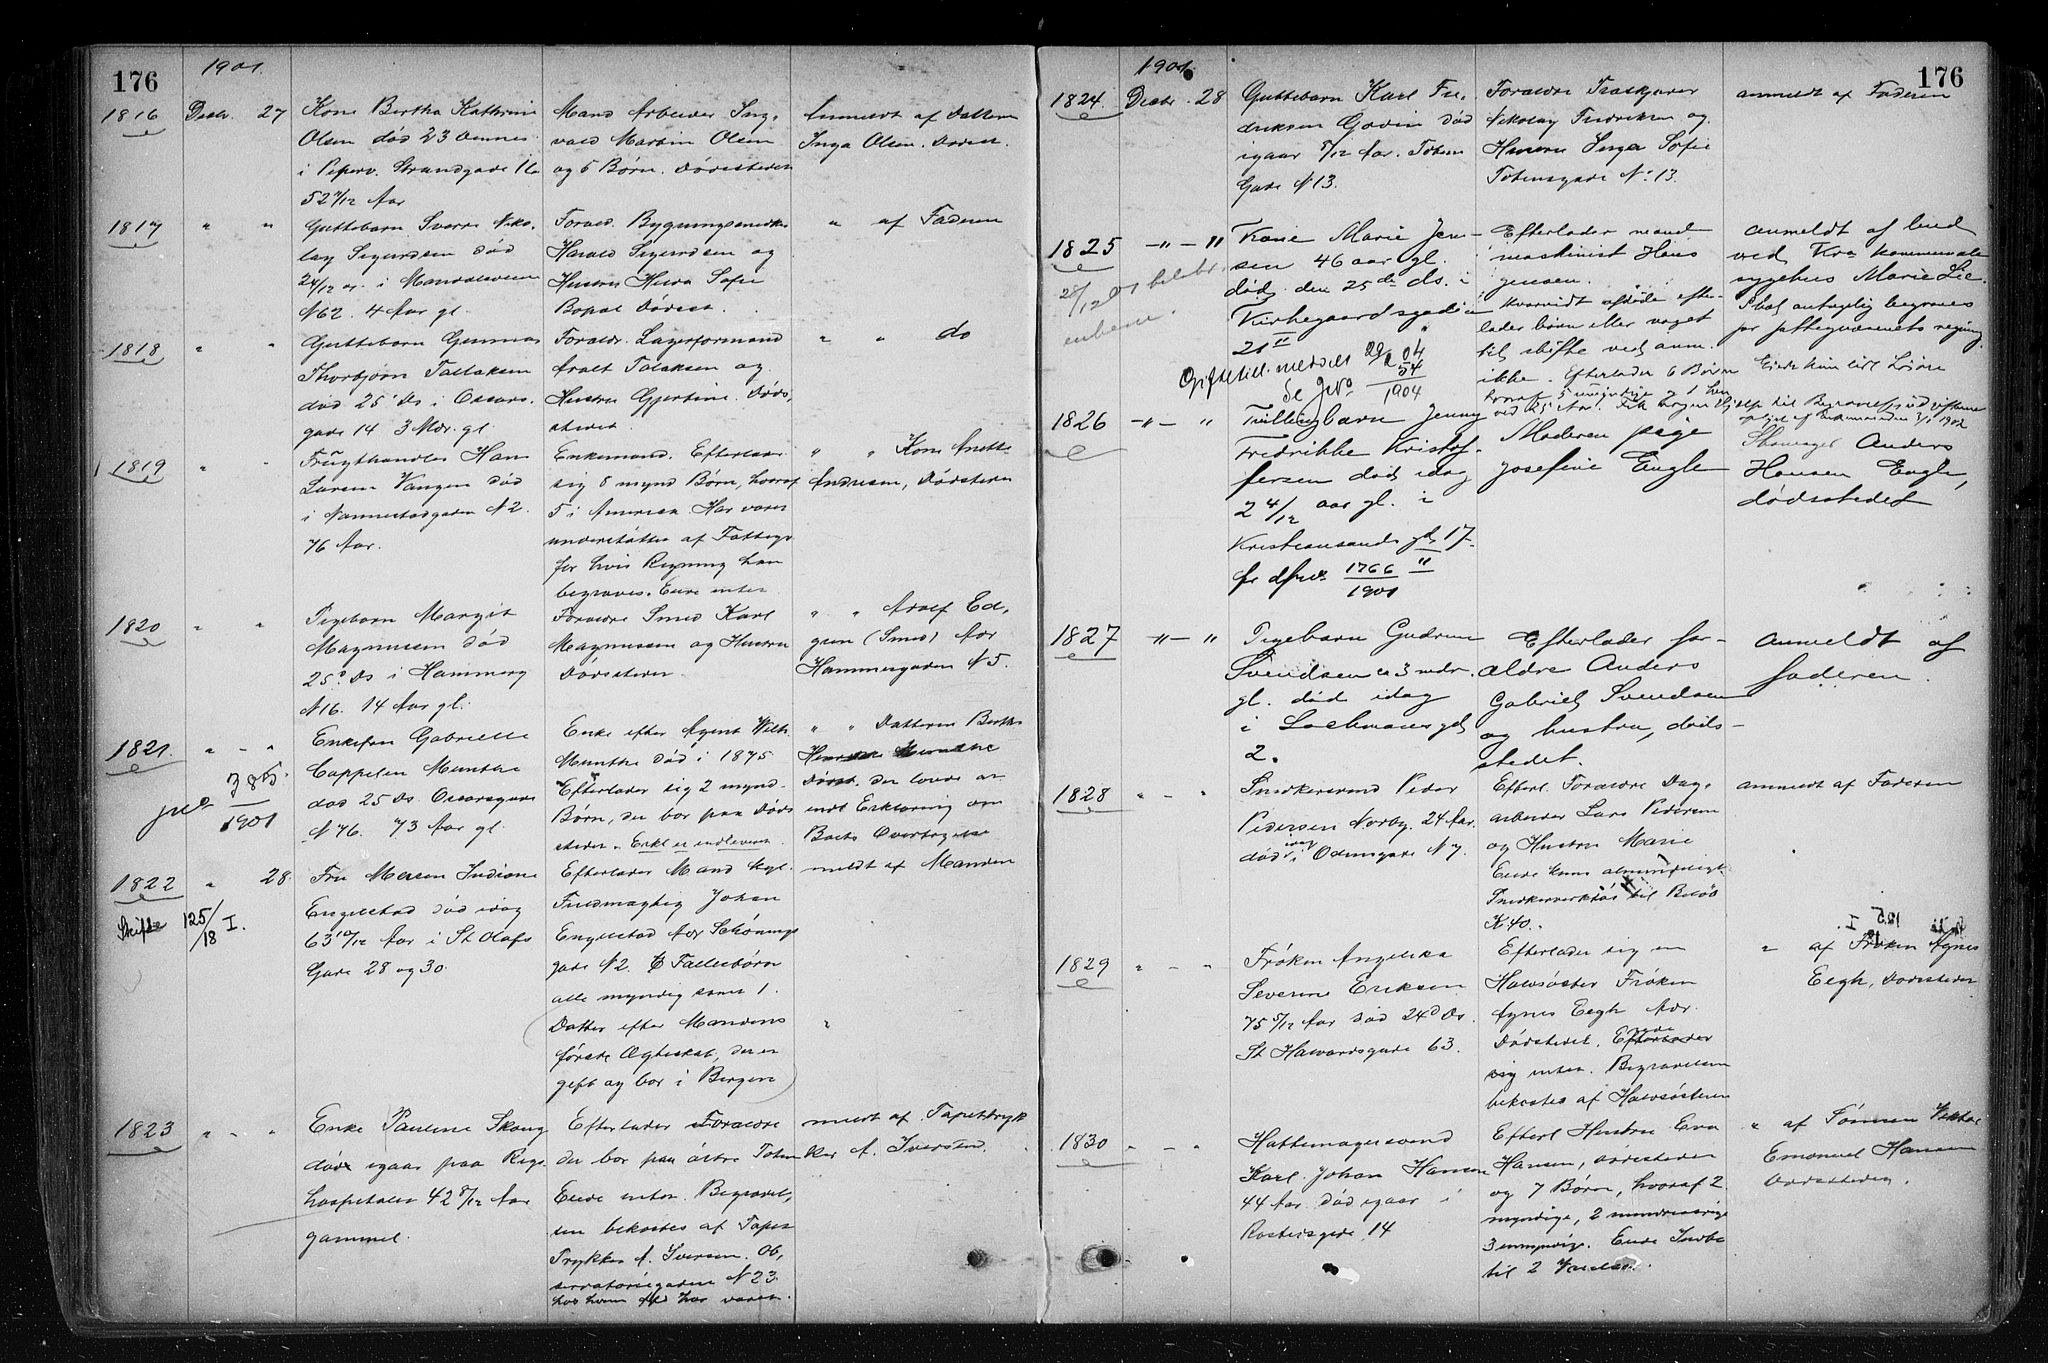 176
1901.
1816 Decbr. 27 Kone Bertha Kathrine
Olsen død 23 dennes
i Piperv. Strandgade 16
52 Aar
Mand Arbeider Ing-
vald Martin Olsen
og 6 Børn. Dødsstedet
Anmeldt af Datteren
Inga Olsen. Dødsst.
1817 " " Guttebarn Sverre Niko-
lay Sigurdsen død
24/12 i Mandalsveien
N 62. 4 Aar gl.
Foræld. Bygningssnedker
Harald Sigurdsen og
Hustru Sofie
Bopæl Dødsst.
" af Faderen
1818 " " Guttebarn Gunnar
Thorbjørn Tallaksen
død 25 Ds i Oscars-
gade 14 3 Mdr. gl.
Foræld. Lagerformand
Aralt Talaksen og
Hustru Gjertine. Døds-
stedet
" " do
1819 " " Frugthandler Hans
Larsen Vangen død
i Nannestadgaden N 2.
76 Aar.
Enkemand. Efterlader
sig 8 mynd Børn, hvoraf
5 i Amerika. Har været
understøttet af Fattigv
for hvis Regning han
begraves. Eiede intet
" " Kone Anette
Andresen, Dødsstedet
1820 " " Pigebarn Margit
Magnussen død
25 Ds i Hammerg
N 16. 14 Aar gl.
Forældre Smed Karl
Magnussen og Hustru
Dødsstedet.
" " Adolf Ed-
gren (Smed) Adr
Hammergaden N 5.
1821. " - " Enkefru Gabrielle
Cappelen Munthe
død 25 Ds. Oscarsgade
N 76. 73 Aar gl.
385
1901
Enke efter Agent Wilh.
Munthe død i 1875
Efterlader sig 2 mynd.
Børn, der bor paa Døds
stedet. Erkl er indleveret
" " Datteren Berthe
Munthe
Dødsst. der lovede at
indl Erklæring om
Boets Overtagelse
1822 " 28. Fru Maren Indiane
Engelstad død idag
63 10/12 Aar i St Olafs
Gade 28 og 30.
Skifte 125/18 I.
Efterlader Mand Kgl.
Fuldmægtig Johan
Engelstad Adr Schønings
gade N 2. Fællesbørn
alle myndig samt 1.
Datter efter Mandens
første Ægteskab, der er
gift og bor i Bergen
meldt af Manden
1823 " - " Enke Pauline Skoug
døde igaar paa Rigs-
hospitalet 42 8/12 Aar
gammel.
Efterlader Forældre
der bor paa østre Toten
Eiede intet. Begravel-
sen bekostes af Tapet
Trykker A. Iversen. Ob-
servatoriegaden N 23.
hos hvem Afd har været.
meldt af. Tapettryk
ker A. Iversen.
1901.
176
1824 Decbr. 28 Guttebarn Karl Fre-
driksen Godin død
igaar 5/12 Aar. Toten
Gade N 13.
Forældre
Nikolay Fredriksen og
Hustru Inga Sofie
Totensgade No 13.
anmeldt af Faderen
1825 -"-" Kone Marie Jen-
sen 46 aar gl.
død den 25de ds. i
Kirkegaardsgaden
21 II
28/12 01
Giftetill. meddelt
1904
Efterlader mand
maskinist Hans
Jensen.
Hvorvidt afdøde efter-
lader børn eller noget
til skifte ved anm.
ikke. Efterlader 6 Børn
hvoraf 5 umyndige og 1
anmeldt af bud
ved Kra kommunale
sygehus Marie Lie.
Skal antagelig begraves
for fattigvæsenets regning.
Eiede kun lidt Løsøre
1826 -"- " Tvillingbarn Jenny
Fredrikke Kristof-
fersen død idag
2 4/12 aar gl. i
Kristiansands gd 17
1766
1901
Moderen pige
Josefine Engle
Skomager Anders
Hansen Engle,
dødsstedet
1827 "-" Pigebarn Gudrun
Svendsen ca 3 mdr.
gl. død idag
i Lochmansgd
2.
Efterlader for-
ældre Anders
Gabriel Svendsen
og hustru, døds-
stedet.
Anmeldt af
faderen.
1828 " - " Snedkersvend Peder
Pedersen Norby. 24 Aar.
død idag i Odinsgade N 7.
Efterl. Forældre Dag-
arbeider Lars Pedersen
og Hustru Marie
Eiede kun almindeligt
Snedkerverktøi til Beløb
K 40.
anmeldt af Faderen
1829 " - " Frøken Angelika
Severine Eriksen
75 5/12 Aar død 24d Ds.
St Halvardsgade 63.
Efterlader sig en
Halvsøster Frøken
Agnes Eegh Adr.
Dødsstedet. Efterlader
sig intet. Begravelsen
bekostes af Halvsøsteren
" af Frøken Agnes
Eegh, Dødsstedet
1830 " - " Hattemagersvend
Karl Johan Hansen
44 Aar død igaar i
Rostedsgade 14
Efterl Hustru Eva
Hansen, Dødsstedet
og 7 Børn, hvoraf 2
myndige, 2 mindreaarige
3 umyndig. Eiede Indbo
til 2 Værelser.
" af Sønnen Viktor
Emanuel Hansen
Dødsstedet.